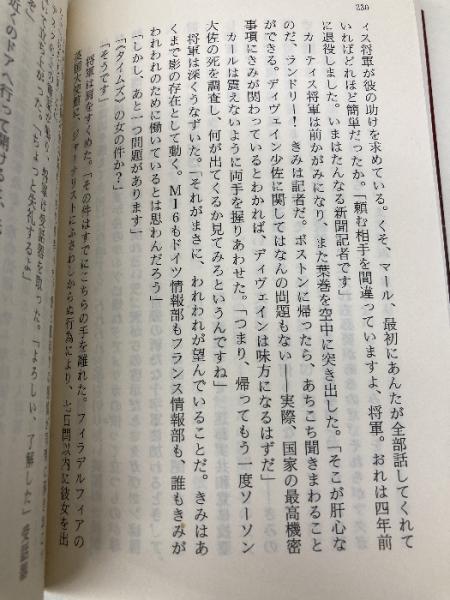 230
ィス将軍が彼の助けを求めている。くそ、マール、最初にあんたが全部話してくれて
いればどれほど簡単だったか。「頼む相手を間違っていますよ、将軍。おれは四年前
に退役しました。いまはたんなる新聞記者です」
カーティス将軍は前かがみになり、また葉巻を空中に突き出した。「そこが肝心な
のだ、ランドリー！　きみは記者だ。ボストンに帰ったら、あちこち聞きまわること
ができる。ディヴェイン少佐に関してはなんの問題もない――実際、国家の最高機密
事項にきみが関わっているとわかれば、ディヴェインは味方になるはずだ」
カールは震えないように両手を握りあわせた。「つまり、帰ってもう一度ソーソン
大佐の死を調査し、何が出てくるか見てみるというんですね」
将軍は深くうなずいた。「それがまさに、われわれが望んでいることだ。きみはあ
くまで影の存在として動く。ＭＩ６もドイツ情報部もフランス情報部も、誰もきみが
われわれのために働いているとは思わんだろう」
「しかし、あと一つ問題があります」
「《タイムズ》の女の件か？」
「そうです」
将軍は肩をすくめた。「その件はすでにこちらの手を離れた。フィラデルフィアの
英国大使館が、ジャーナリストにふさわしからぬ行為により、七
時間以内に彼女を出
立ち上がった。「ちょっと失礼するよ」
受話器を取った。「よろしい、了解した」受話器
近くのドアへ行って開ける